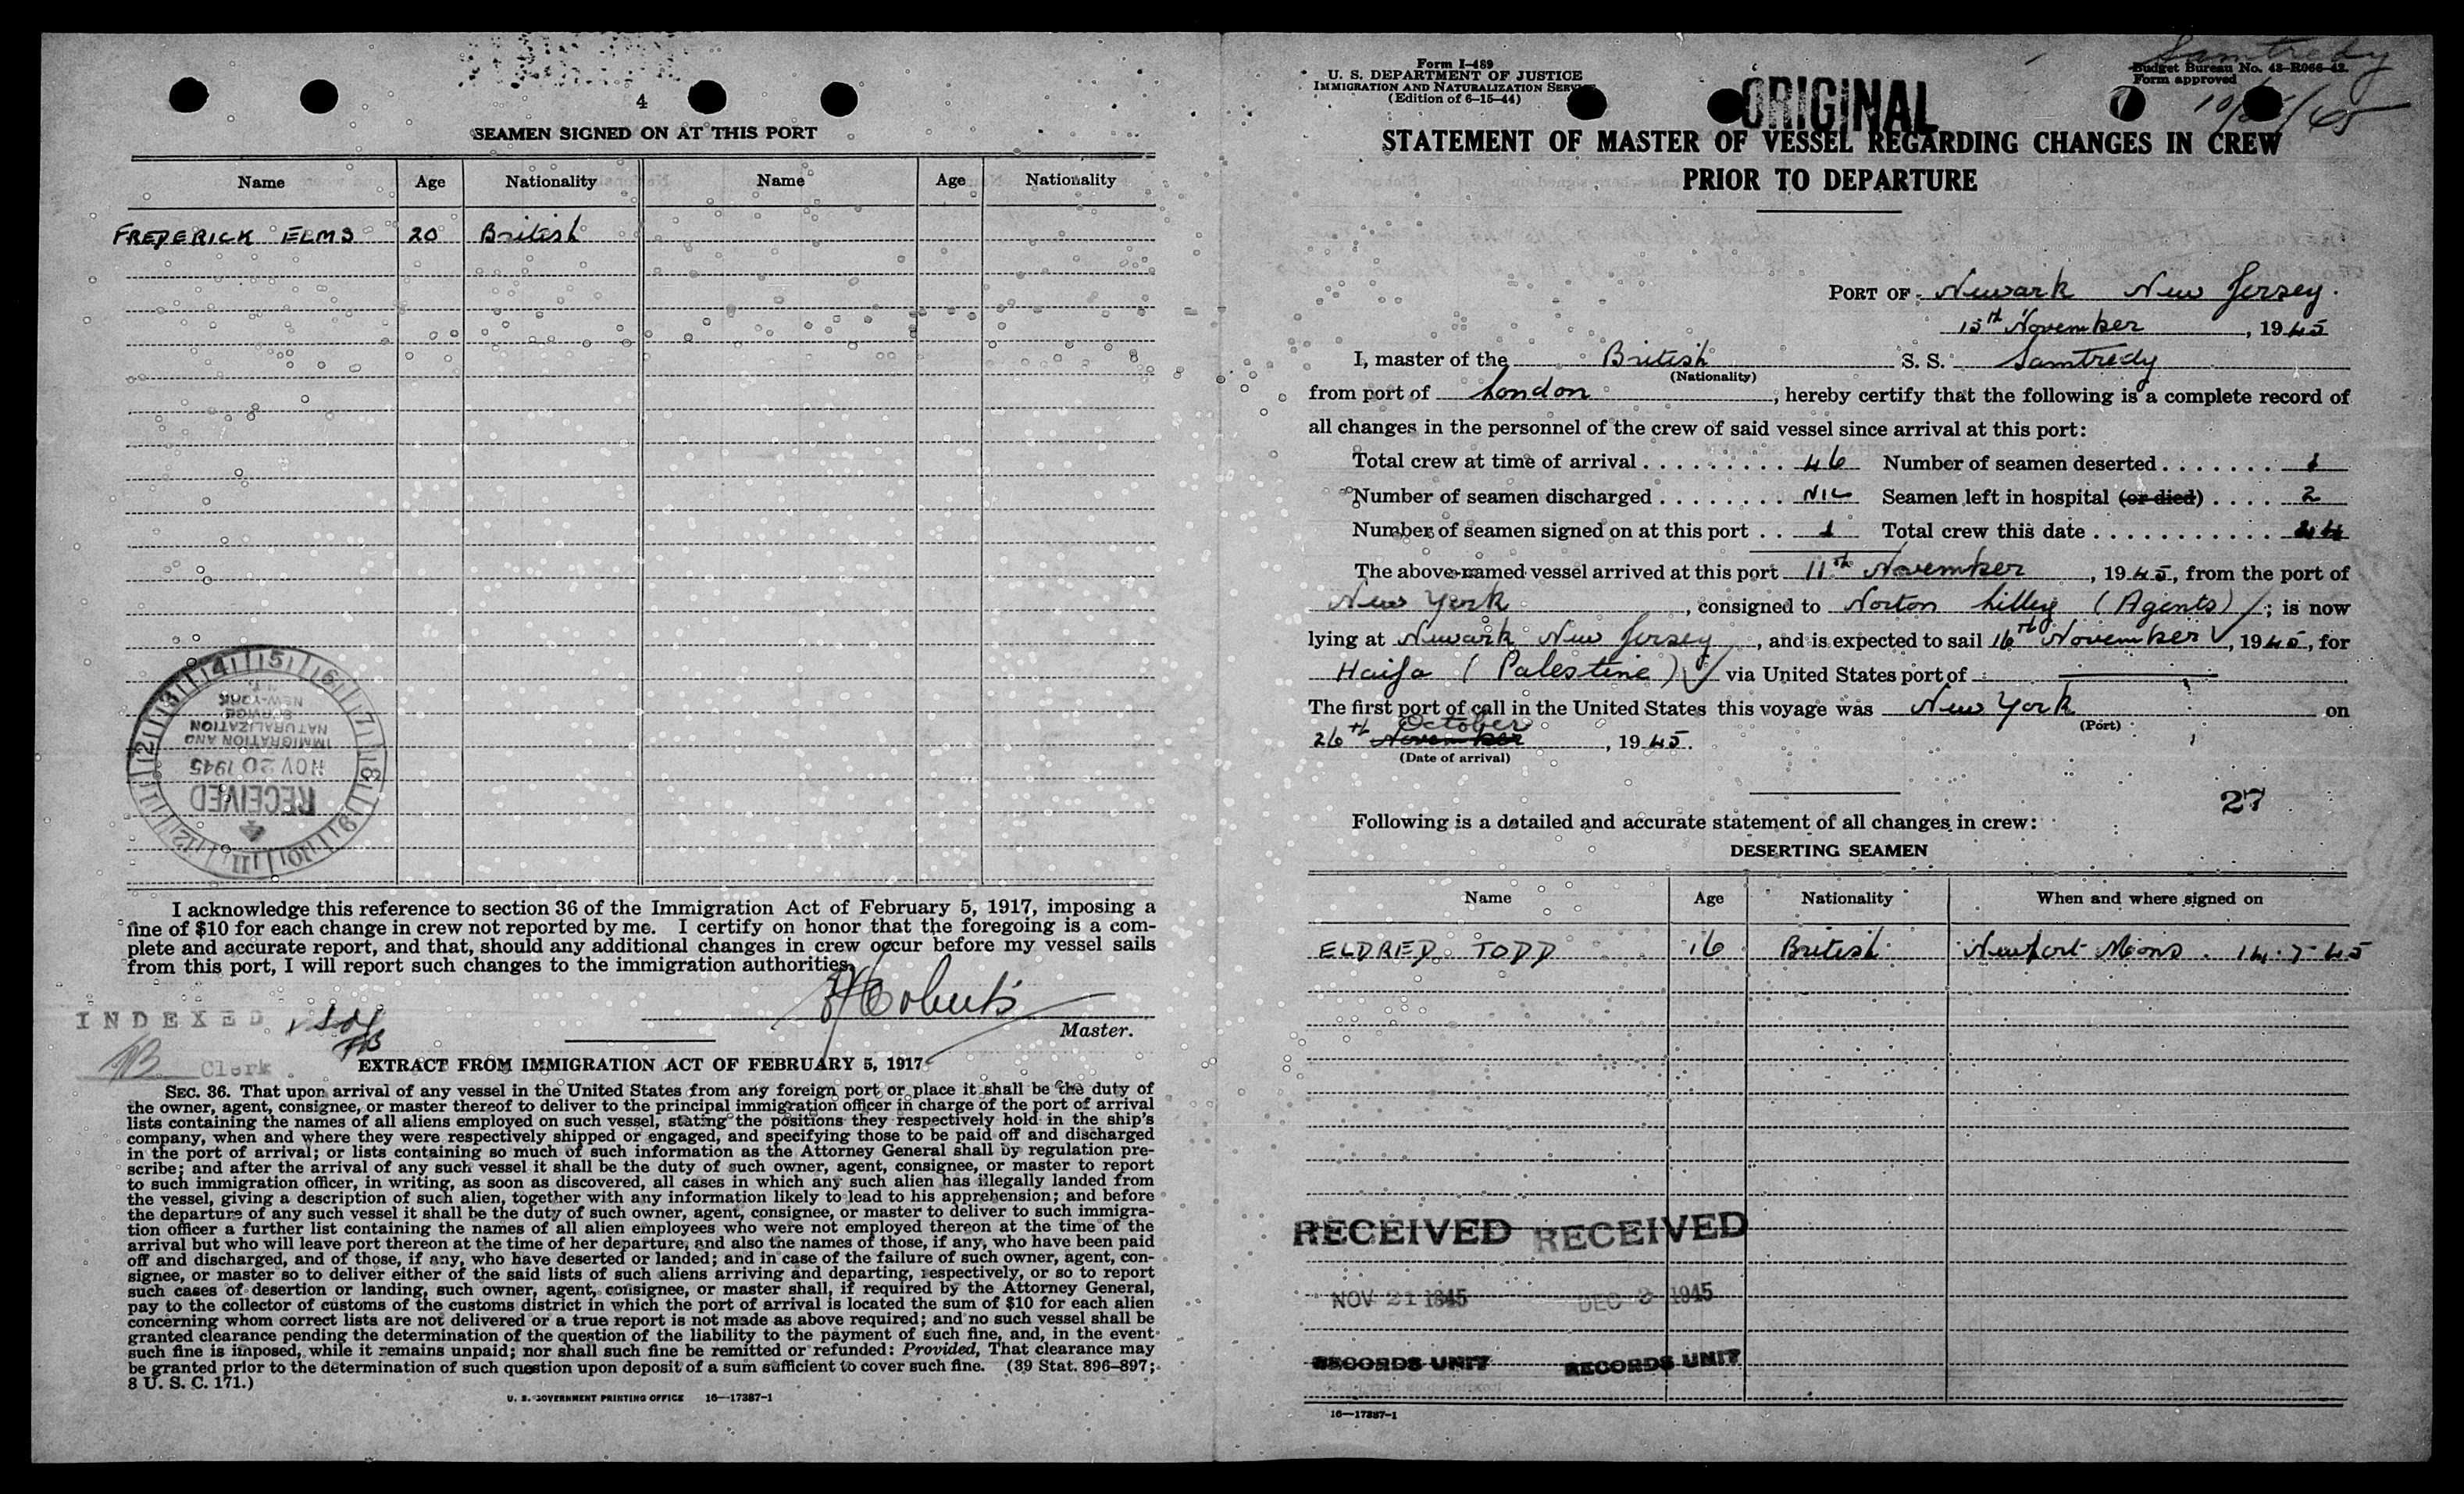 4
SEAMEN SIGNED ON AT THIS PORT
Name Age Nationality Name Age Nationality
FREDERICK ELMS 20 British
RECEIVED
NOV 20 1945
IMMIGRATION AND
NATURALIZATION
SERVICE
NEW YORK
N. Y.
I acknowledge this reference to section 36 of the Immigration Act of February 5, 1917, imposing a
fine of $10 for each change in crew not reported by me. I certify on honor that the foregoing is a com-
plete and accurate report, and that, should any additional changes in crew occur before my vessel sails
from this port, I will report such changes to the immigration authorities.
Roberts
Master.
INDEXED
Clerk
EXTRACT FROM IMMIGRATION ACT OF FEBRUARY 5, 1917
SEC. 36. That upon arrival of any vessel in the United States from any foreign port or place it shall be the duty of
the owner, agent, consignee, or master thereof to deliver to the principal immigration officer in charge of the port of arrival
lists containing the names of all aliens employed on such vessel, stating the positions they respectively hold in the ship's
company, when and where they were respectively shipped or engaged, and specifying those to be paid off and discharged
in the port of arrival; or lists containing so much of such information as the Attorney General shall by regulation pre-
scribe; and after the arrival of any such vessel it shall be the duty of such owner, agent, consignee, or master to report
to such immigration officer, in writing, as soon as discovered, all cases in which any such alien has illegally landed from
the vessel, giving a description of such alien, together with any information likely to lead to his apprehension; and before
the departure of any such vessel it shall be the duty of such owner, agent, consignee, or master to deliver to such immigra-
tion officer a further list containing the names of all alien employees who were not employed thereon at the time of the
arrival but who will leave port thereon at the time of her departure, and also the names of those, if any, who have been paid
off and discharged, and of those, if any, who have deserted or landed; and in case of the failure of such owner, agent, con-
signee, or master so to deliver either of the said lists of such aliens arriving and departing, respectively, or so to report
such cases of desertion or landing, such owner, agent, consignee, or master shall, if required by the Attorney General,
pay to the collector of customs of the customs district in which the port of arrival is located the sum of $10 for each alien
concerning whom correct lists are not delivered or a true report is not made as above required; and no such vessel shall be
granted clearance pending the determination of the question of the liability to the payment of such fine, and, in the event
such fine is imposed, while it remains unpaid; nor shall such fine be remitted or refunded: Provided, That clearance may
be granted prior to the determination of such question upon deposit of a sum sufficient to cover such fine. (39 Stat. 896–897;
8 U. S. C. 171.)
U. S. GOVERNMENT PRINTING OFFICE 16—17387-1
Samtredy
Form I-489
U. S. DEPARTMENT OF JUSTICE
IMMIGRATION AND NATURALIZATION SERVICE
(Edition of 6-15-44)
Budget Bureau No. 43-R066-42.
Form approved
ORIGINAL
STATEMENT OF MASTER OF VESSEL REGARDING CHANGES IN CREW
PRIOR TO DEPARTURE
PORT OF Newark New Jersey.
15th November, 1945
I, master of the British S. S. Samtredy
(Nationality)
from port of London, hereby certify that the following is a complete record of
all changes in the personnel of the crew of said vessel since arrival at this port:
Total crew at time of arrival . . . . . . . . . . 46 Number of seamen deserted . . . . . . . 1
Number of seamen discharged . . . . . . . . NIL Seamen left in hospital (or died) . . . . 2
Number of seamen signed on at this port . . 1 Total crew this date . . . . . . . . . . . . 44
The above-named vessel arrived at this port 11th November, 1945, from the port of
New York, consigned to Norton Lilley (Agents); is now
lying at Newark New Jersey, and is expected to sail 16th November, 1945, for
Haifa (Palestine) via United States port of
The first port of call in the United States this voyage was New York on
(Port)
26th November October, 1945.
(Date of arrival)
27
Following is a detailed and accurate statement of all changes in crew:
DESERTING SEAMEN
Name Age Nationality When and where signed on
ELDRED TODD 16 British Newport Mons. 14.7.45
RECEIVED RECEIVED
NOV 21 1945 DEC 3 1945
RECORDS UNIT RECORDS UNIT
16—17387-1